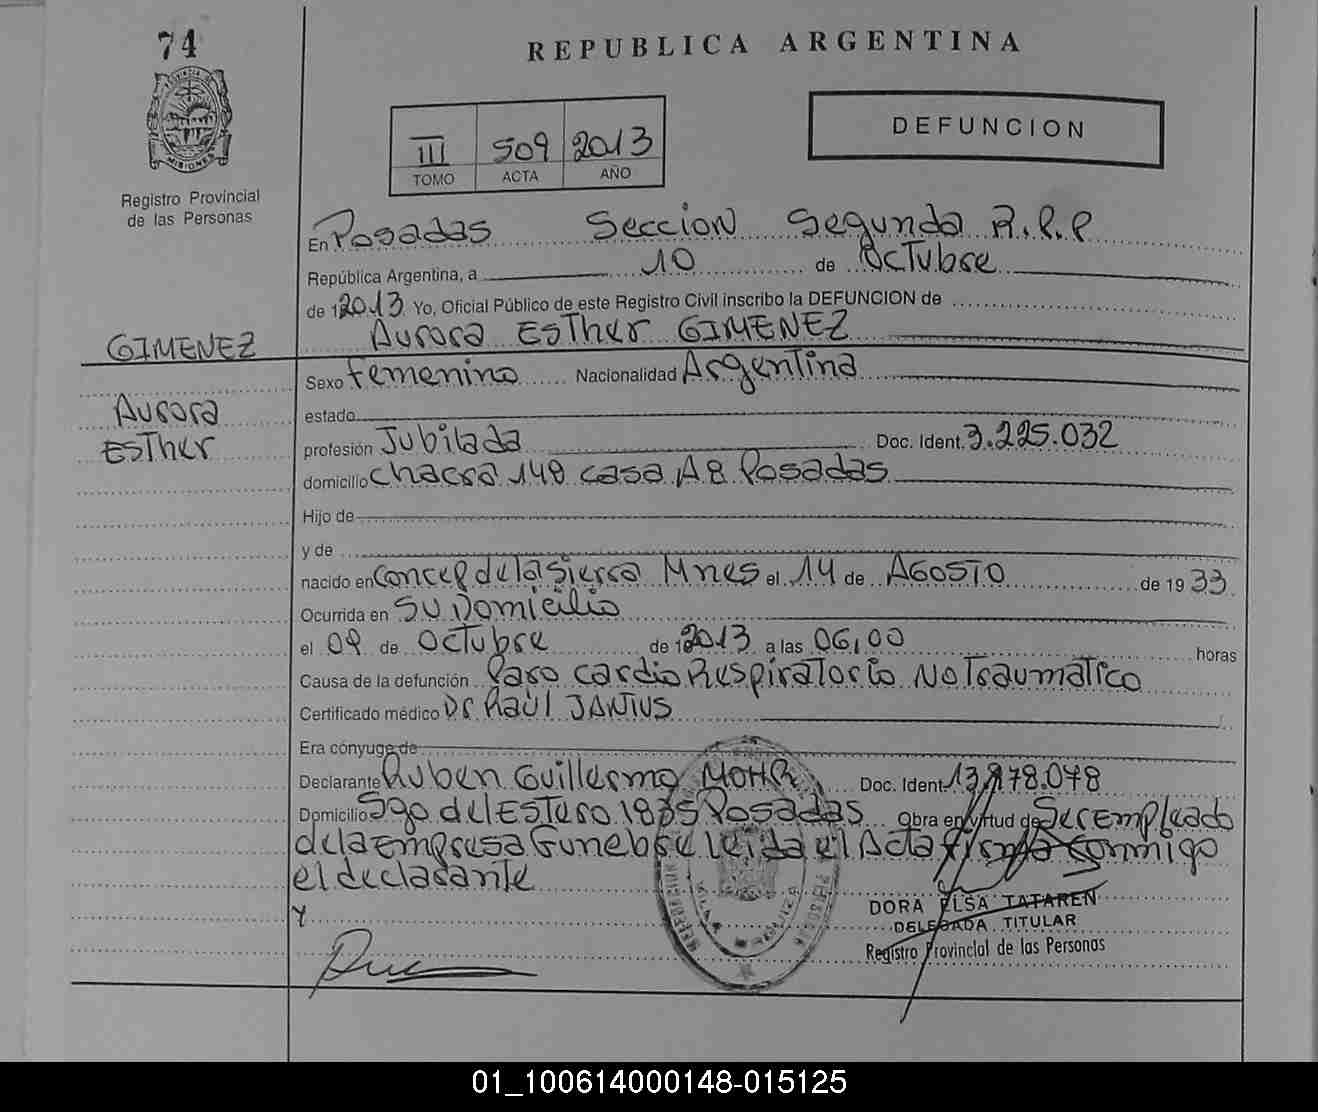 74
REPUBLICA ARGENTINA
PROVINCIA DE
MISIONES
Registro Provincial
de las Personas
III 509 2013
TOMO ACTA AÑO
DEFUNCION
En Posadas Seccion Segunda R.P.P
República Argentina, a 10 de Octubre
de 2013 Yo, Oficial Público de este Registro Civil inscribo la DEFUNCION de
GIMENEZ Aurora Esther GIMENEZ
Sexo femenino Nacionalidad Argentina
Aurora estado
Esther profesión Jubilada Doc. Ident. 3.225.032
domicilio chacra 148 casa A8 Posadas
Hijo de
y de
nacido en Concep de la Sierra Mnes el 14 de AGOSTO de 1933
Ocurrida en SU Domicilio
el 09 de Octubre de 2013 a las 06,00 horas
Causa de la defunción Paro Cardio Respiratorio No Traumatico
Certificado médico Dr RAÜL JANIUS
Era cónyuge de
Declarante Ruben Guillermo MOHR Doc. Ident. 13.878.078
Domicilio Sgo del Estero 1835 Posadas Obra en virtud de Ser Empleado
de la Empresa Funebre leida el Acta firma Conmigo
el declarante
DORA ELSA TATAREN
Y
DELEGADA TITULAR
Registro Provincial de las Personas
01_100614000148-015125